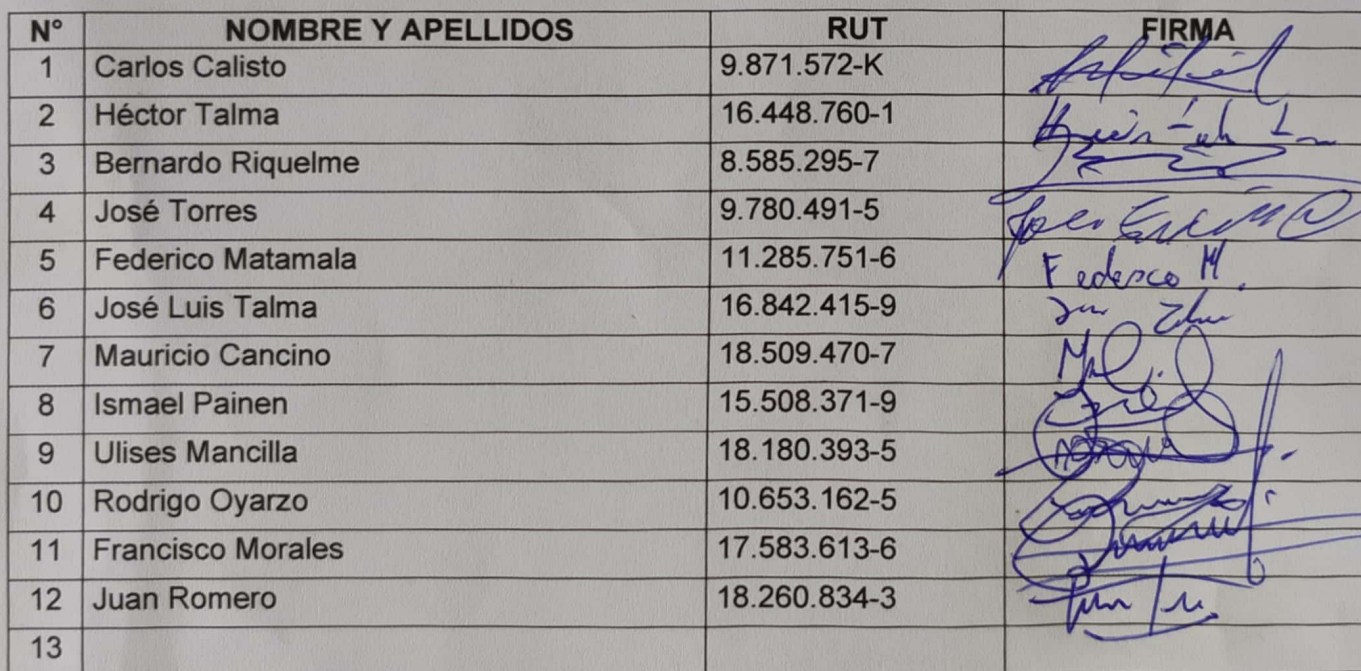 N° NOMBRE Y APELLIDOS RUT FIRMA
1 Carlos Calisto 9.871.572-K
2 Héctor Talma 16.448.760-1
3 Bernardo Riquelme 8.585.295-7
4 José Torres 9.780.491-5
5 Federico Matamala 11.285.751-6 Federico M.
6 José Luis Talma 16.842.415-9
7 Mauricio Cancino 18.509.470-7
8 Ismael Painen 15.508.371-9
9 Ulises Mancilla 18.180.393-5
10 Rodrigo Oyarzo 10.653.162-5
11 Francisco Morales 17.583.613-6
12 Juan Romero 18.260.834-3
13